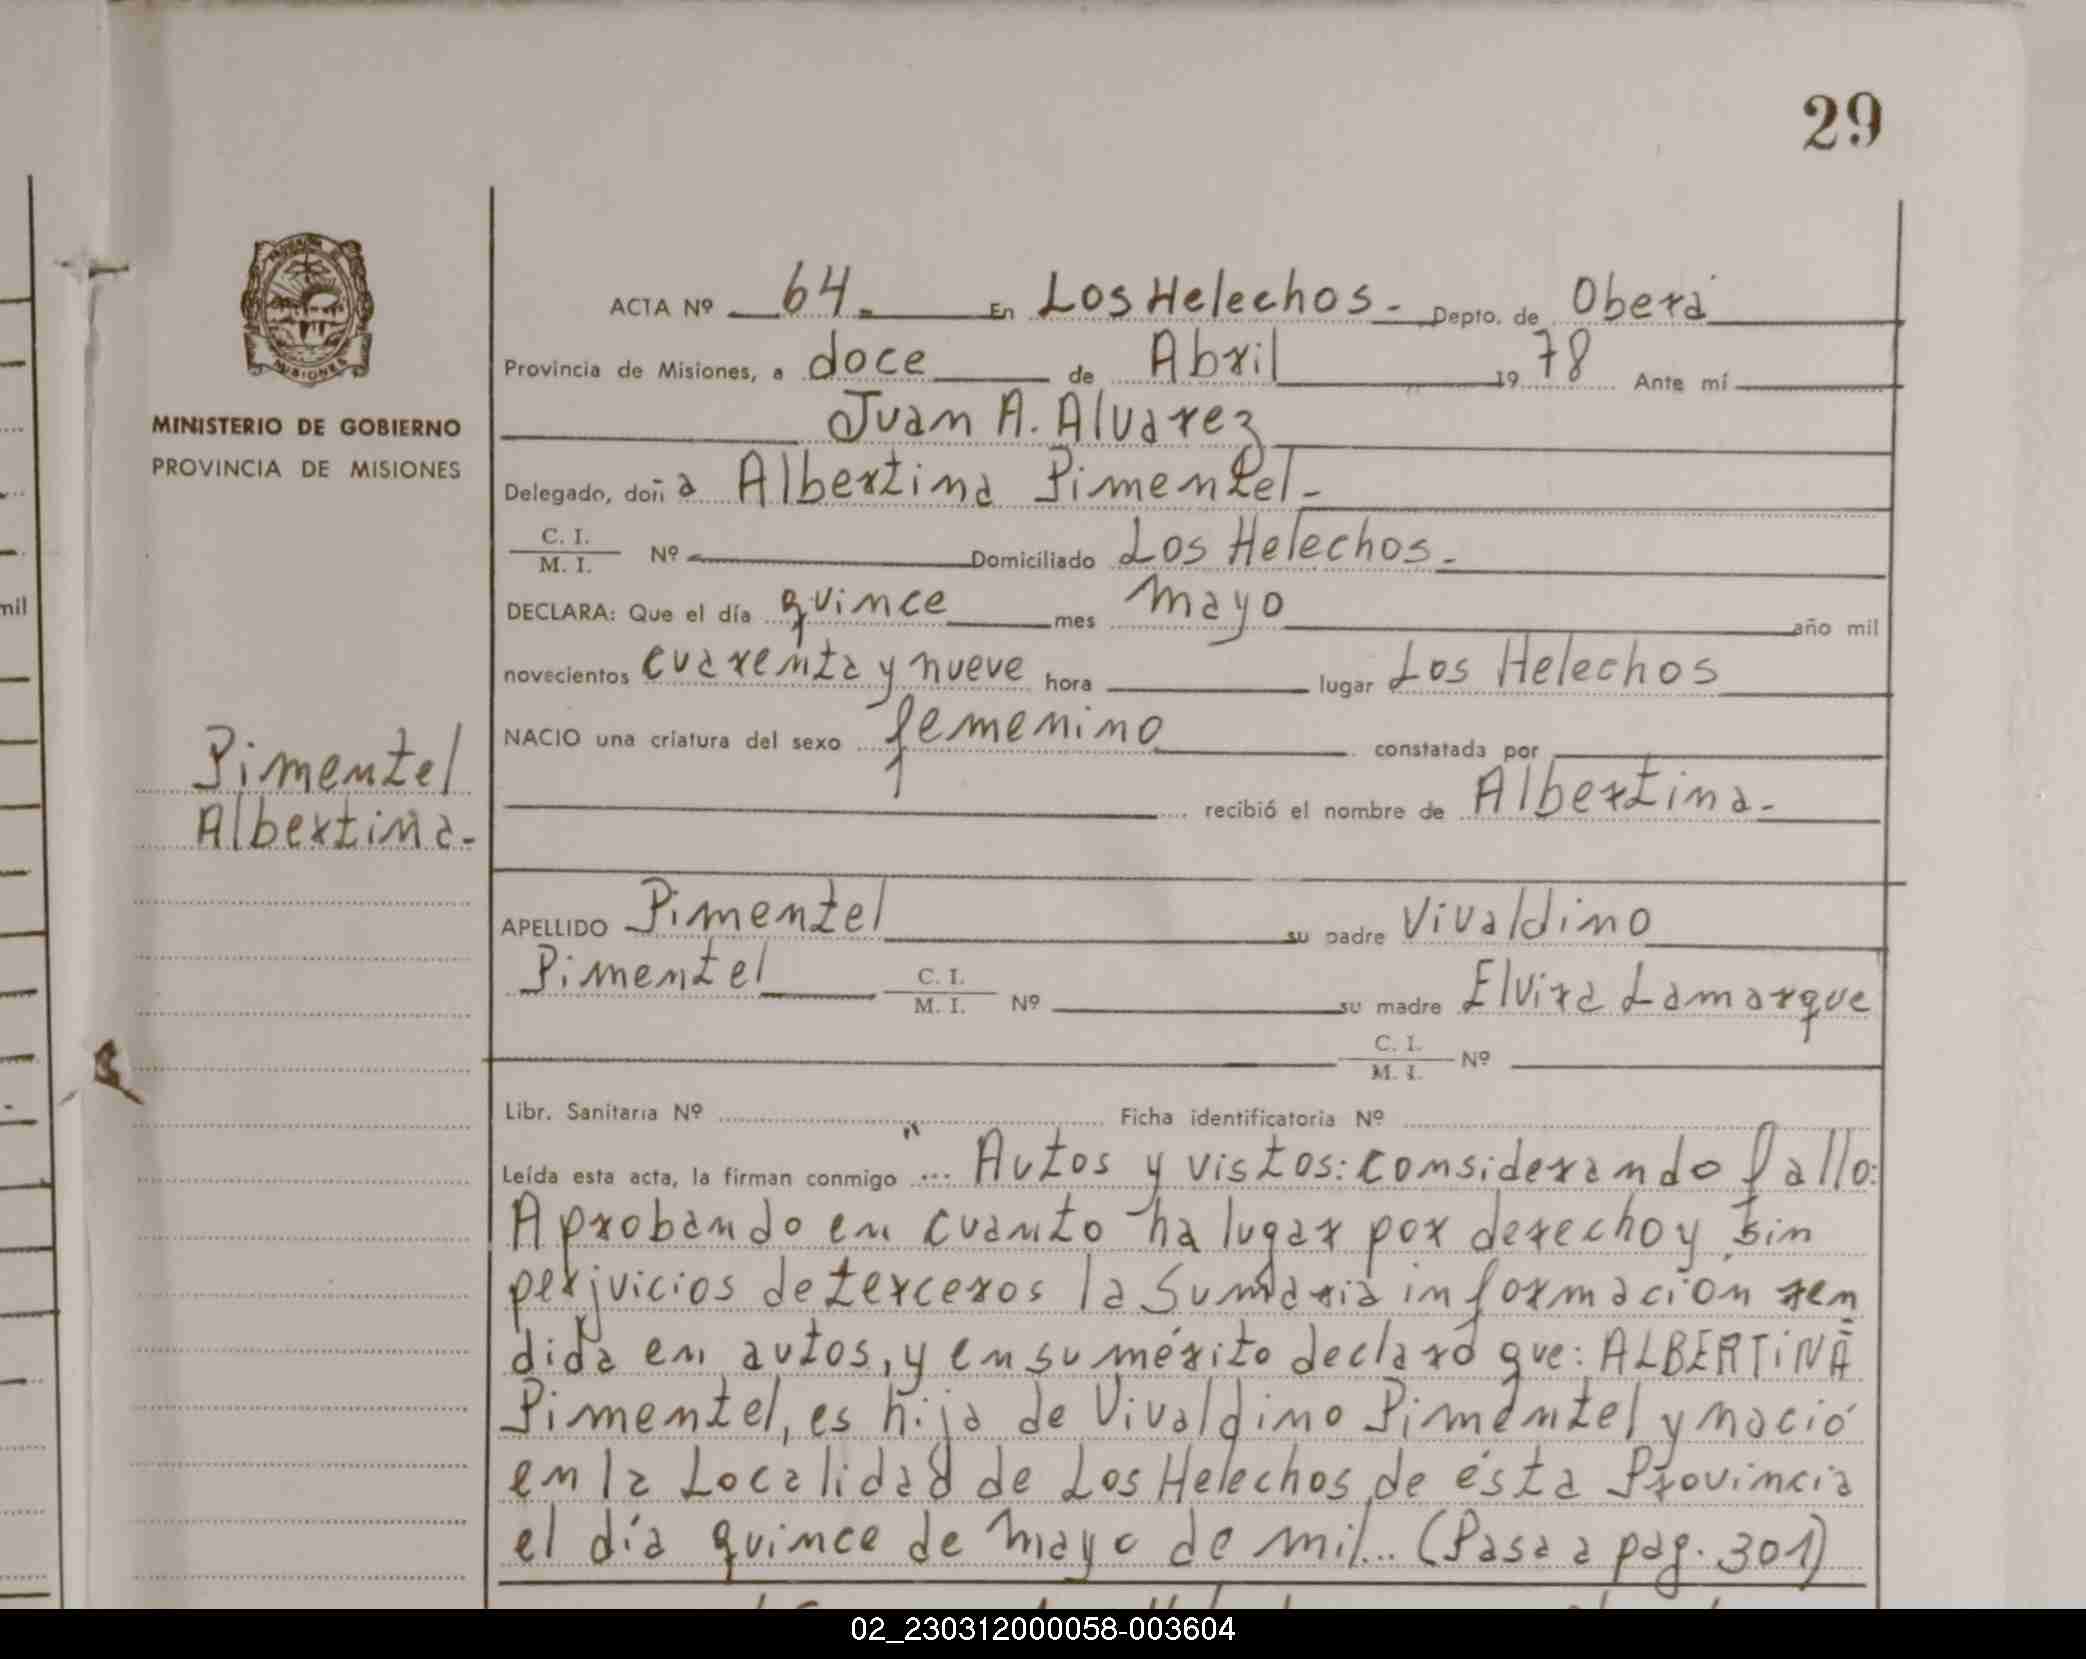 29
MISIONES
MINISTERIO DE GOBIERNO
PROVINCIA DE MISIONES
Pimentel
Albertina-
ACTA Nº 64. En Los Helechos - Depto. de Oberá
Provincia de Misiones, a doce de Abril 1978 Ante mí
Juan A. Alvarez
Delegado, doña Albertina Pimentel-
C. I.
M. I. Nº Domiciliado Los Helechos.
DECLARA: Que el día quince mes mayo año mil
novecientos cuarenta y nueve hora lugar Los Helechos
NACIO una criatura del sexo femenino constatada por
recibió el nombre de Albertina-
APELLIDO Pimentel su padre Vivaldino
Pimentel C. I. M. I. Nº su madre Elvira Lamarque
C. I. M. I. Nº
Libr. Sanitaria Nº Ficha identificatoria Nº
Leída esta acta, la firman conmigo "... Autos y vistos: considerando fallo:
Aprobando en cuanto ha lugar por derecho y sin
perjuicios de terceros la Sumaria información ren
dida en autos, y en su mérito declaro que: ALBERTINA
Pimentel, es hija de Vivaldino Pimentel y nació
en la Localidad de Los Helechos de ésta Provincia
el día quince de mayo de mil... (Pasa a pag. 301)
mil
02_230312000058-003604